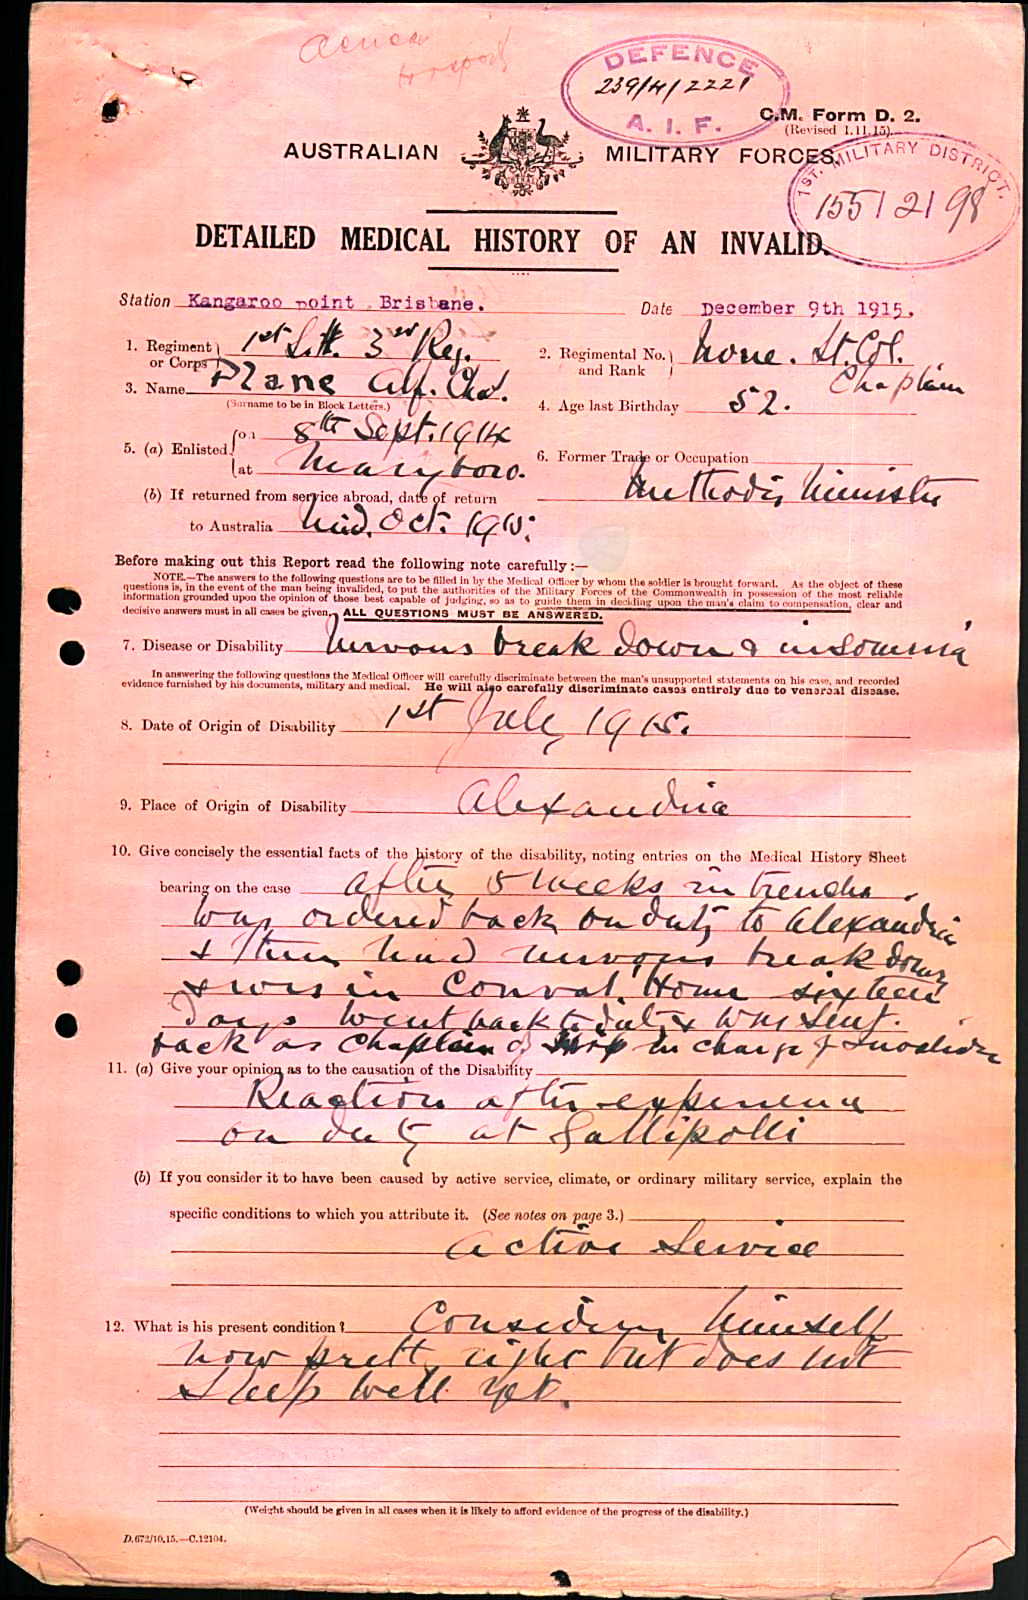 DEFENCE
239/4/2221
A. I. F.
C.M. Form D. 2.
(Revised 1.11.15).
AUSTRALIAN MILITARY FORCES.
1ST. MILITARY DISTRICT.
155/2/98
DETAILED MEDICAL HISTORY OF AN INVALID.
Station Kangaroo point . Brisbane.
Date December 9th 1915.
1. Regiment or Corps 1st L.H. 3rd Reg.
2. Regimental No. and Rank None. Lt. Col. Chaplain
3. Name Plane Alf. Chas.
(Surname to be in Block Letters.)
4. Age last Birthday 52.
5. (a) Enlisted on 8th Sept. 1914
at Maryboro.
6. Former Trade or Occupation
Methodis Minister
(b) If returned from service abroad, date of return
to Australia Mid. Oct. 1915.
Before making out this Report read the following note carefully :—
NOTE.—The answers to the following questions are to be filled in by the Medical Officer by whom the soldier is brought forward. As the object of these
questions is, in the event of the man being invalided, to put the authorities of the Military Forces of the Commonwealth in possession of the most reliable
information grounded upon the opinion of those best capable of judging, so as to guide them in deciding upon the man's claim to compensation, clear and
decisive answers must in all cases be given. ALL QUESTIONS MUST BE ANSWERED.
7. Disease or Disability Nervous break down & insomnia
In answering the following questions the Medical Officer will carefully discriminate between the man's unsupported statements on his case, and recorded
evidence furnished by his documents, military and medical. He will also carefully discriminate cases entirely due to venereal disease.
8. Date of Origin of Disability 1st July 1915.
9. Place of Origin of Disability Alexandria
10. Give concisely the essential facts of the history of the disability, noting entries on the Medical History Sheet
bearing on the case after 5 weeks in trenches
was ordered back on duty to Alexandria
& then had nervous break down
& was in Conval. Home sixteen
days went back to duty & was sent
back as Chaplain in charge of Invalides
11. (a) Give your opinion as to the causation of the Disability
Reaction after experience
on duty at Gallipolli
(b) If you consider it to have been caused by active service, climate, or ordinary military service, explain the
specific conditions to which you attribute it. (See notes on page 3.)
active service
12. What is his present condition? Considers himself
now pretty right but does not
sleep well yet.
(Weight should be given in all cases when it is likely to afford evidence of the progress of the disability.)
D.672/10.15.—C.12104.